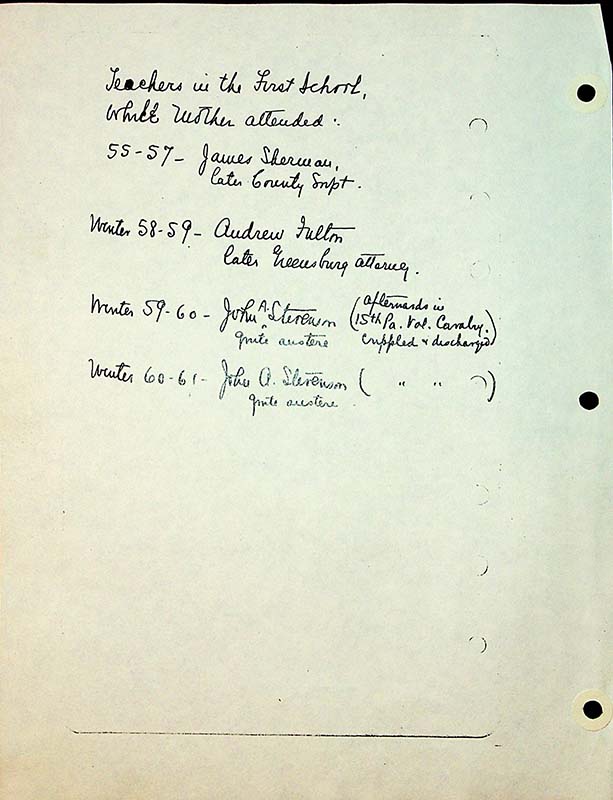 Teachers in the First School,
while Mother attended:
55-57- James Sherman,
later County Supt.
Winter 58-59- Andrew Fulton
later Greensburg attorney.
Winter 59-60- John A. Stevenson (afterwards in
15th Pa. Vol. Cavalry.
quite austere crippled & discharged)
Winter 60-61- John A. Stevenson ( " " )
quite austere.